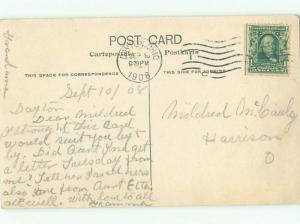 POST CARD
Cartepostale
Postkarta
THIS SPACE FOR CORRESPONDENCE
THIS SIDE FOR ADDRESS
OHIO
1908
Grandma
Sept 10/08
Dayton
Dear Mildred
I thought this card
would suit you by +
by. Did Aunt get
a letter Tuesday from
me? Tell her I would hers
also one from Aunt Etta
all well. With love to all
Gramma
Mildred McCauley
Harrison
O